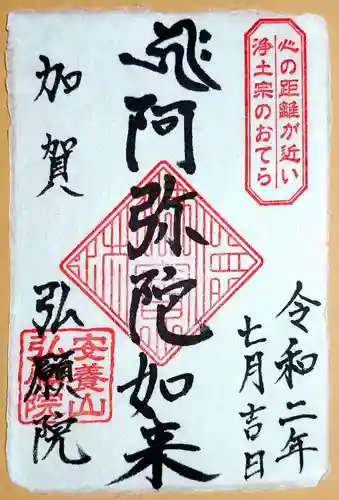 心の距離が近い
浄土宗のおてら
令和二年
七月吉日
阿弥陀如来
加賀
弘願院
安養山
弘願院